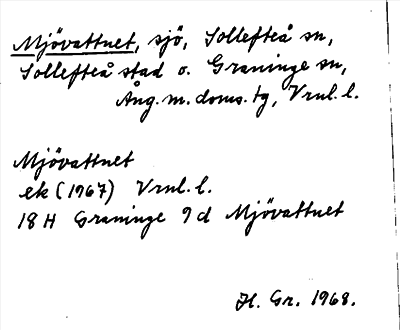 Mjövattnet, sjö, Sollefteå sn,
Sollefteå stad o. Graninge sn,
Ång. m. doms. tg, Vrnl. l.
Mjövattnet
ek (1967) Vrnl. l.
18 H Graninge 9 d Mjövattnet
H. Gr. 1968.